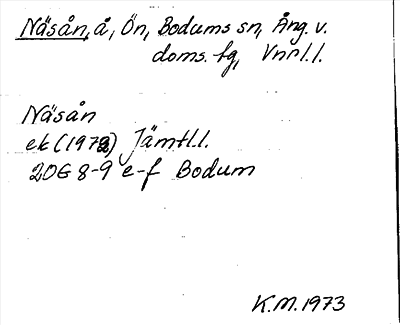 Näsån, å, Ön, Bodums sn, Ång. v.
doms. fg, Vnrl.l.
Näsån
ek (1972) Jämtl.l.
20G 8-9 e-f Bodum
K.M. 1973